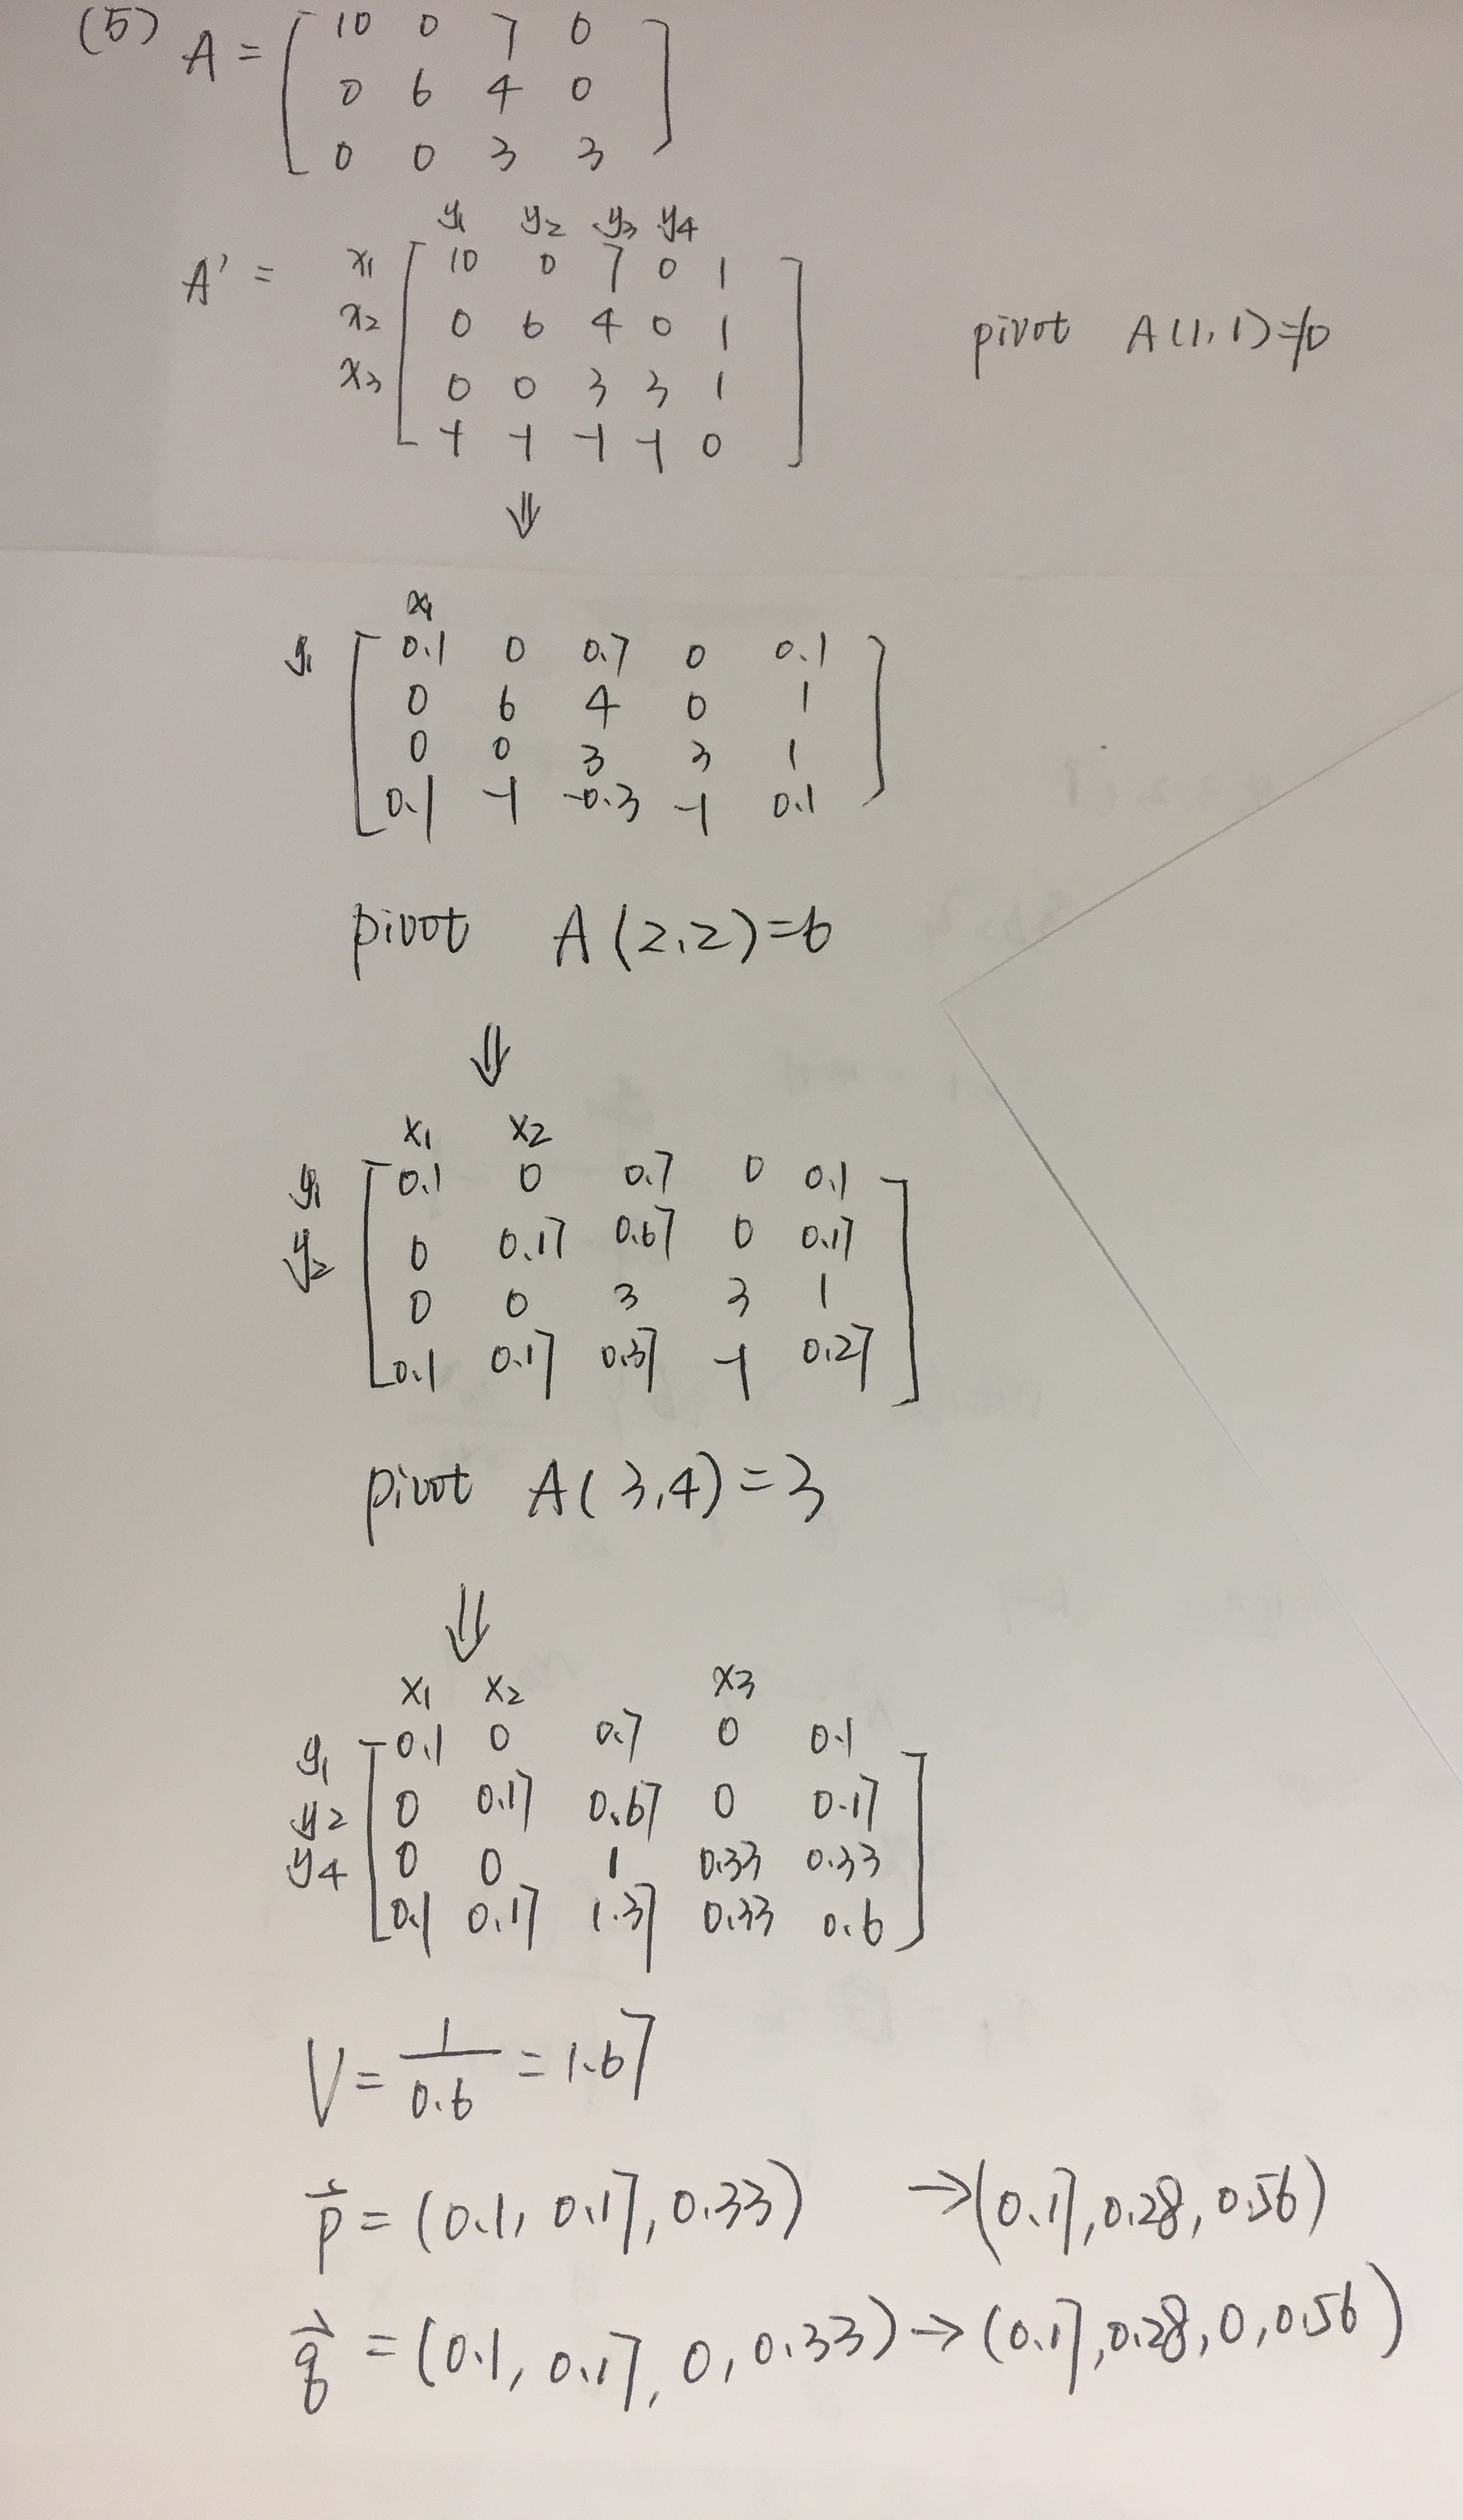 (5) A = [ 10 0 7 0
0 6 4 0
0 0 3 3 ]
y1 y2 y3 y4
A' = x1 [ 10 0 7 0 1
x2 0 6 4 0 1 pivot A(1,1)=10
x3 0 0 3 3 1
-1 -1 -1 -1 0 ]
⇓
x1
y1 [ 0.1 0 0.7 0 0.1
0 6 4 0 1
0 0 3 3 1
0.1 -1 -0.3 -1 0.1 ]
pivot A(2,2)=6
⇓
x1 x2
y1 [ 0.1 0 0.7 0 0.1
y2 0 0.17 0.67 0 0.17
0 0 3 3 1
0.1 0.17 0.37 -1 0.27 ]
pivot A(3,4)=3
⇓
x1 x2 x3
y1 [ 0.1 0 0.7 0 0.1
y2 0 0.17 0.67 0 0.17
y4 0 0 1 0.33 0.33
0.1 0.17 1.37 0.33 0.6 ]
V = 1/0.6 = 1.67
p⃗ = (0.1, 0.17, 0.33) → (0.17, 0.28, 0.56)
q⃗ = (0.1, 0.17, 0, 0.33) → (0.17, 0.28, 0, 0.56)